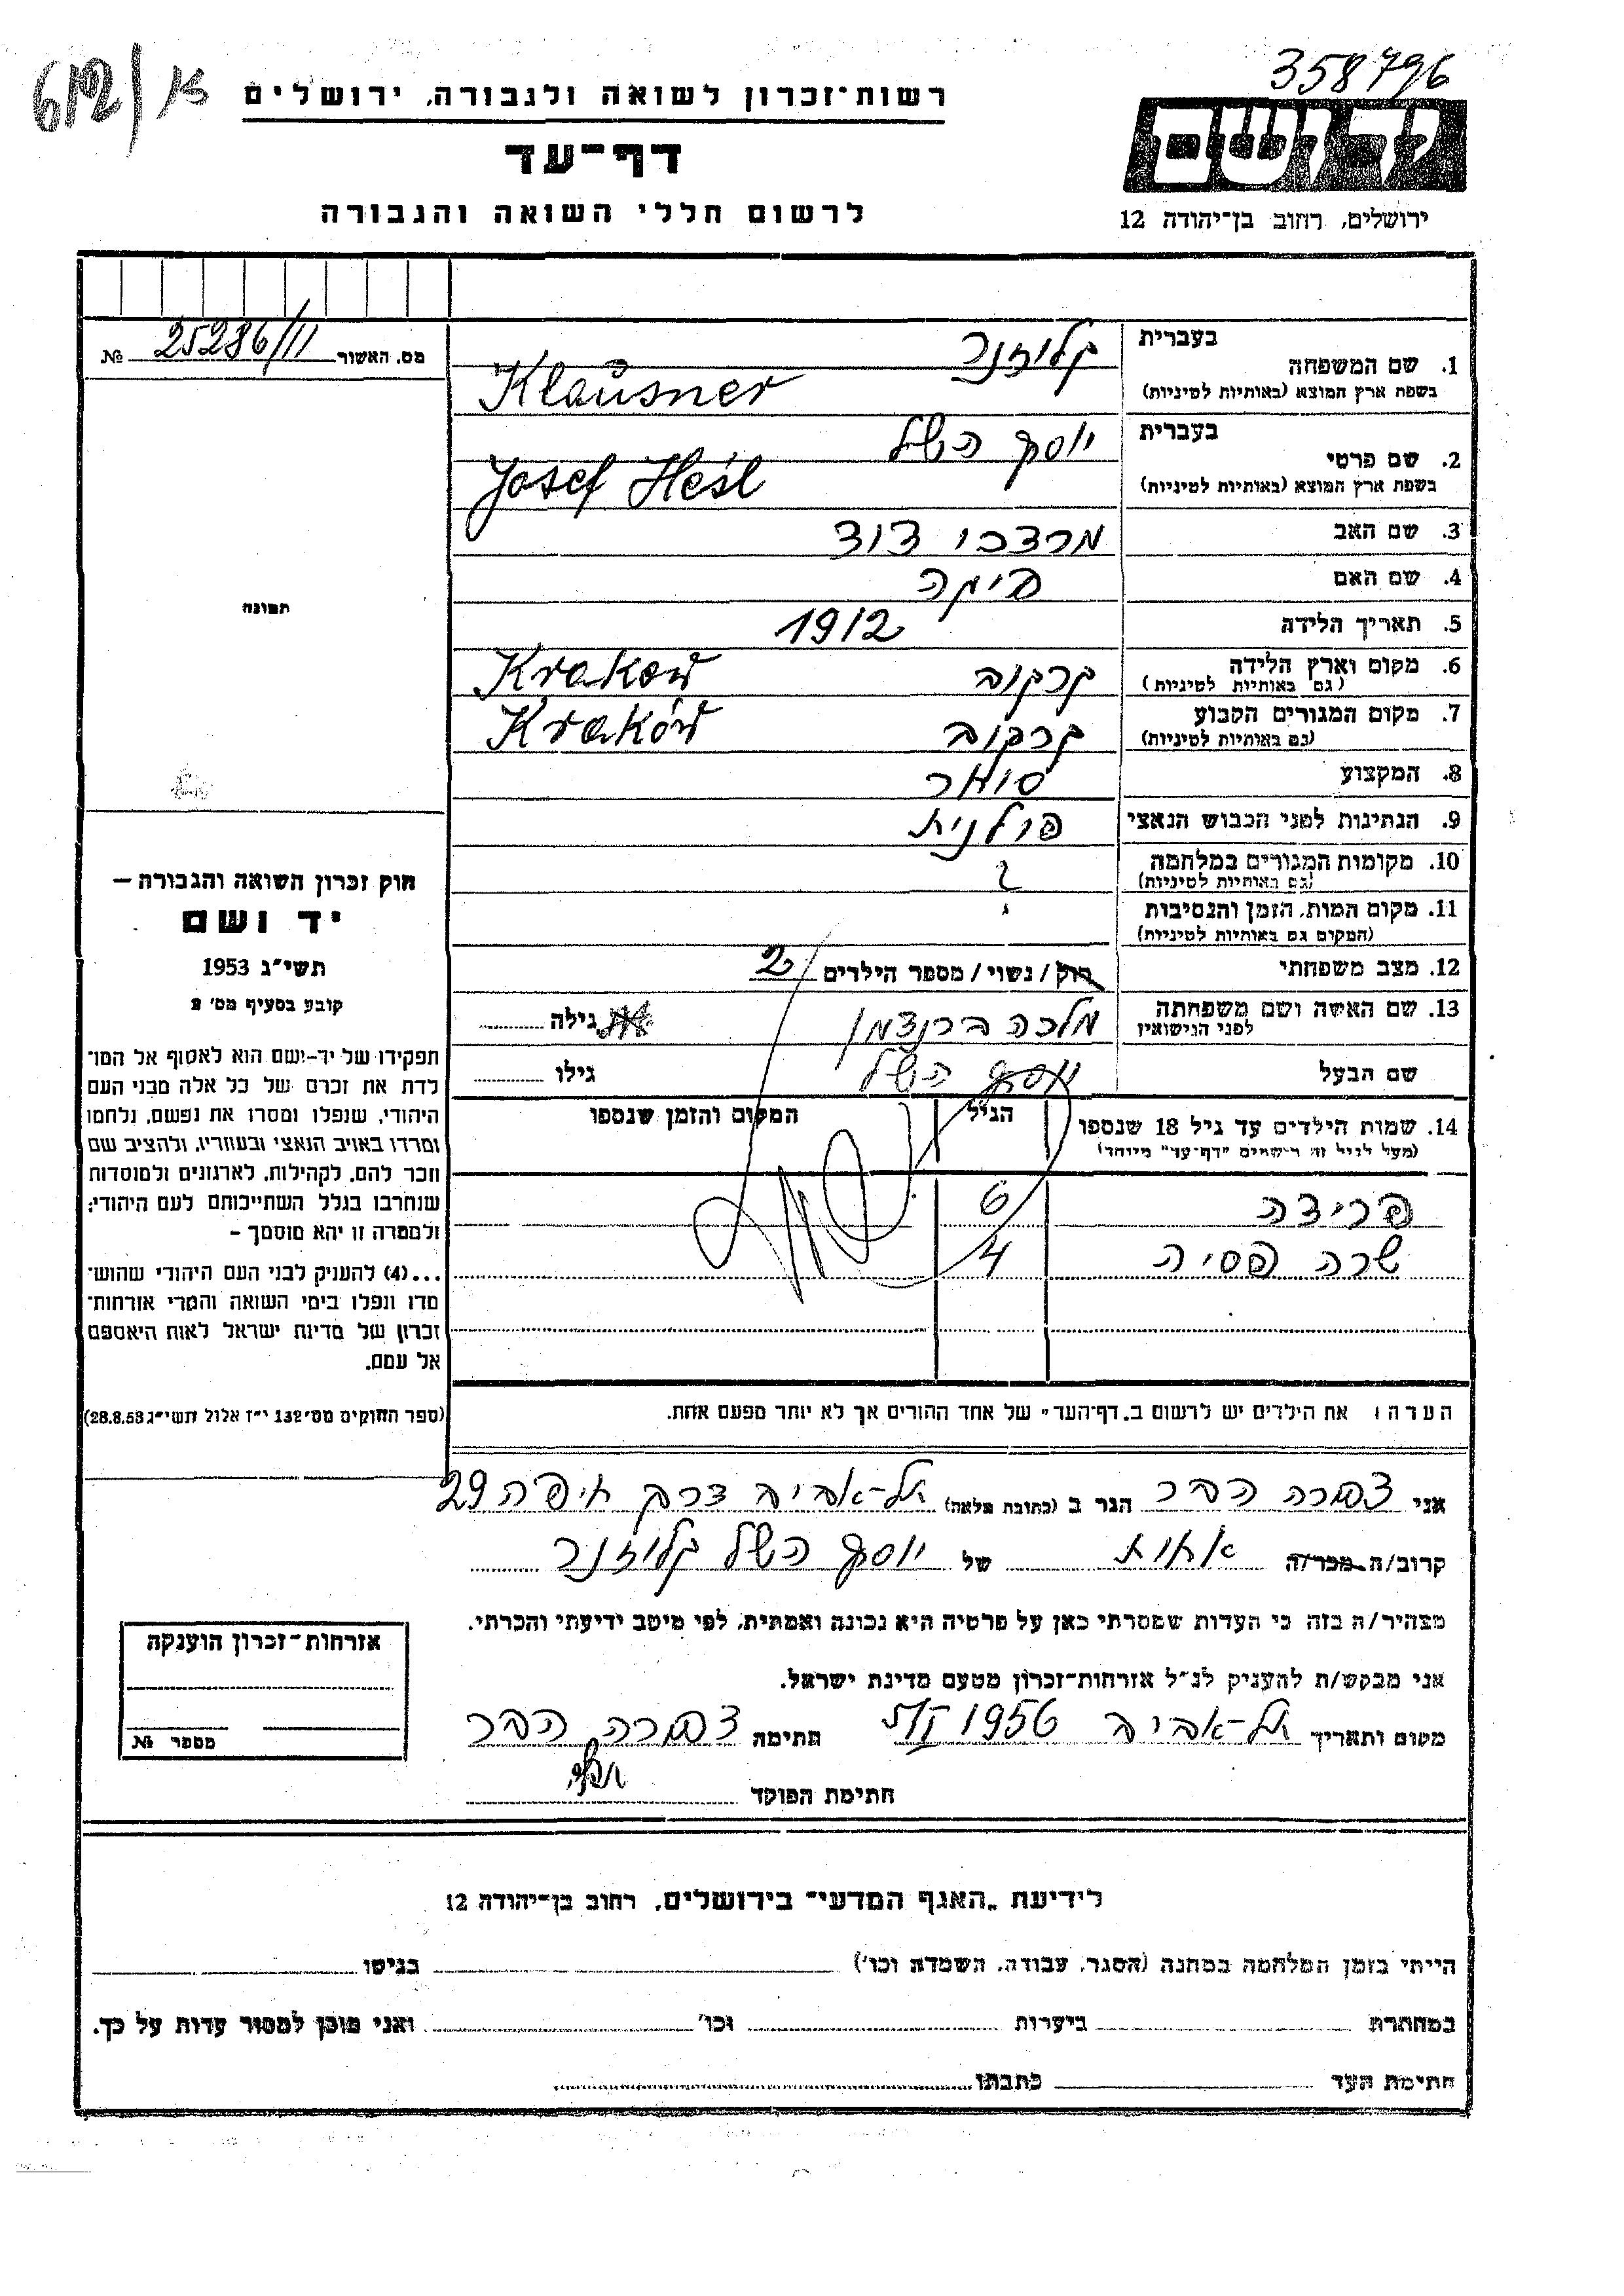 358796
612/א
רשות־זכרון לשואה ולגבורה, ירושלים
ידושם
דף־עד
לרשום חללי השואה והגבורה
ירושלים, רחוב בן־יהודה 12
מס. האשור 25286/11 №
תמונה
חוק זכרון השואה והגבורה —
יד ושם
תשי"ג 1953
קובע בסעיף מס' 2
תפקידו של יד-ושם הוא לאסוף אל המו־
לדת את זכרם של כל אלה מבני העם
היהודי, שנפלו ומסרו את נפשם, נלחמו
ומרדו באויב הנאצי ובעוזריו, ולהציב שם
וזכר להם, לקהילות, לארגונים ולמוסדות
שנחרבו בגלל השתייכותם לעם היהודי;
ולמטרה זו יהא מוסמך –
...(4) להעניק לבני העם היהודי שהוש־
מדו ונפלו בימי השואה והמרי אזרחות־
זכרון של מדינת ישראל לאות היאספם
אל עמם.
(ספר החוקים מס' 132 י"ז אלול תשי"ג 28.8.53)
בעברית קלוזנר
1. שם המשפחה
בשפת ארץ המוצא (באותיות לטיניות) Klausner
בעברית יוסף השל
2. שם פרטי
בשפת ארץ המוצא (באותיות לטיניות) Josef Hešl
3. שם האב מרדכי דוד
4. שם האם
5. תאריך הלידה 1912
6. מקום וארץ הלידה קרקוב Krakow
(גם באותיות לטיניות)
7. מקום המגורים הקבוע קרקוב Kraków
(גם באותיות לטיניות)
8. המקצוע סוחר
9. הנתינות לפני הכבוש הנאצי פולנית
10. מקומות המגורים במלחמה ?
(גם באותיות לטיניות)
11. מקום המות, הזמן והנסיבות
(המקום גם באותיות לטיניות)
12. מצב משפחתי רוק / נשוי / מספר הילדים 2
13. שם האשה ושם משפחתה מלכה ברנצמן גילה
לפני הנישואין
שם הבעל יוסף השל גילו
14. שמות הילדים עד גיל 18 שנספו הגיל המקום והזמן שנספו
(מעל לגיל זה רושמים "דף־עד" מיוחד)
פרידה 6
שרה פסיה 4
הערה: את הילדים יש לרשום ב„דף־העד" של אחד ההורים אך לא יותר מפעם אחת.
אני צפורה הבר הגר ב (כתובת מלאה) תל-אביב דרך חיפה 29
קרוב/ה מכר/ה אחות של יוסף השל קלוזנר
מצהיר/ה בזה כי העדות שמסרתי כאן על פרטיה היא נכונה ואמתית, לפי מיטב ידיעתי והכרתי.
אני מבקש/ת להעניק לנ"ל אזרחות־זכרון מטעם מדינת ישראל.
מקום ותאריך תל-אביב 1956 חתימה צפורה הבר
חתימת הפוקד
אזרחות־זכרון הוענקה
מספר №
לידיעת „האגף המדעי" בירושלים, רחוב בן־יהודה 12
הייתי בזמן המלחמה במחנה (הסגר, עבודה, השמדה וכו') בגיטו
במחתרת ביערות וכו' ואני מוכן למסור עדות על כך.
חתימת העד כתבתו